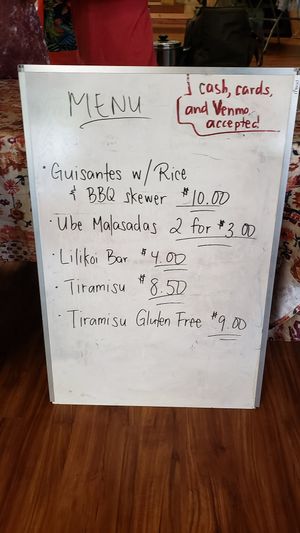 MENU
cash, cards,
and Venmo
accepted!
· Guisantes w/ Rice
& BBQ skewer $10.00
· Ube Malasadas 2 for $3.00
· Lilikoi Bar $4.00
· Tiramisu $8.50
· Tiramisu Gluten Free $9.00